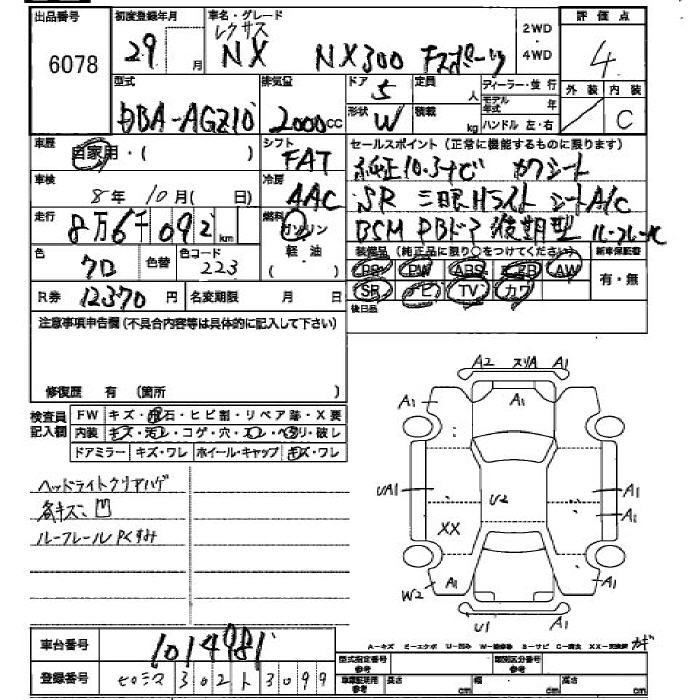 出品番号 初度登録年月 車名・グレード 2WD・4WD 評価点
6078 29 月 レクサス NX NX300 Fスポーツ 4
外装 内装 C
型式 排気量 ドア 5 定員 人 ディーラー・並行
DBA-AGZ10 2000 cc 形状 W 積載 kg モデル年式 年 ハンドル 左・右
車歴 自家用・( ) シフト FAT セールスポイント(正常に機能するものに限ります)
純正10.3ナビ カワシート
車検 8年 10月( 日) 冷房 AAC SR 三眼Hライト シートA/C
走行 8万6千092 km 燃料 ガソリン 軽油 ( ) BSM PBドア 後期型 ルーフレール
色 クロ 色替 色コード 223
装備品(純正品に限り○をつけてください) 新車保証書
PS PW ABS エアB AW 有・無
SR ナビ TV カワ
R券 12370 円 名変期限 月 日
後日品
注意事項申告欄(不具合内容等は具体的に記入して下さい)
修復歴 有 (箇所 )
検査員記入欄 FW キズ・飛石・ヒビ割・リペア跡・X要
内装 キズ・汚レ・コゲ・穴・スレ・ヘタリ・破レ
ドアミラー キズ・ワレ ホイール・キャップ キズ・ワレ
ヘッドライトクリアハゲ
各キズ、凹
ルーフレールPくすみ
A2 スリA A1
A1 A1 A1
UA1 U2 A1
A1
XX
W2 A1 A1
U1 A1
車台番号 1014981
登録番号 ヒロシマ 302 ト 3099
A-キズ E-エクボ U-凹み W-補修跡 S-サビ C-腐食 XX-交換済
型式指定番号 参考 類別区分番号 参考
車庫証明用 参考 長さ cm 幅 cm 高さ cm